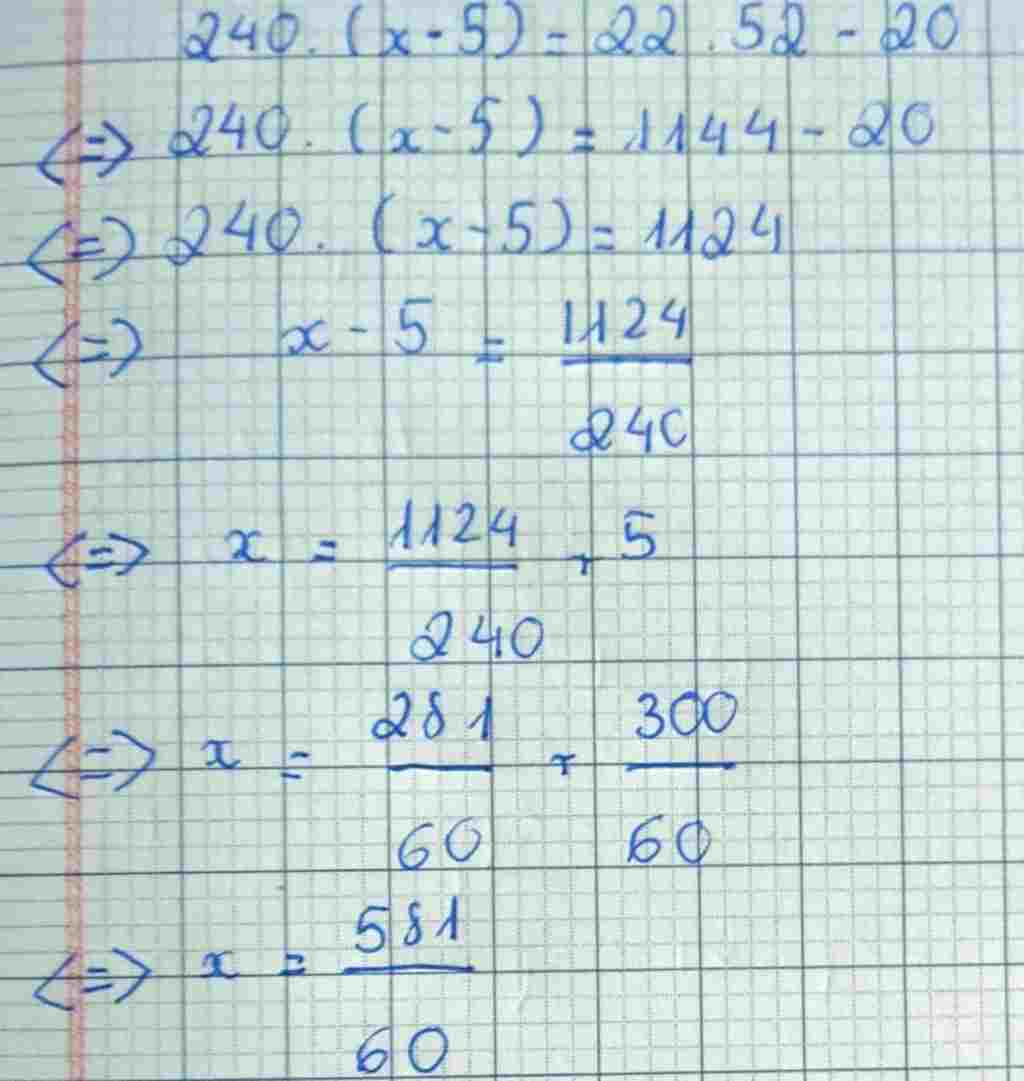 240. (x-5) = 22 . 52 - 20
<=> 240. (x-5) = 1144 - 20
<=> 240. (x-5) = 1124
<=> x - 5 = 1124/240
<=> x = 1124/240 + 5
<=> x = 281/60 + 300/60
<=> x = 581/60